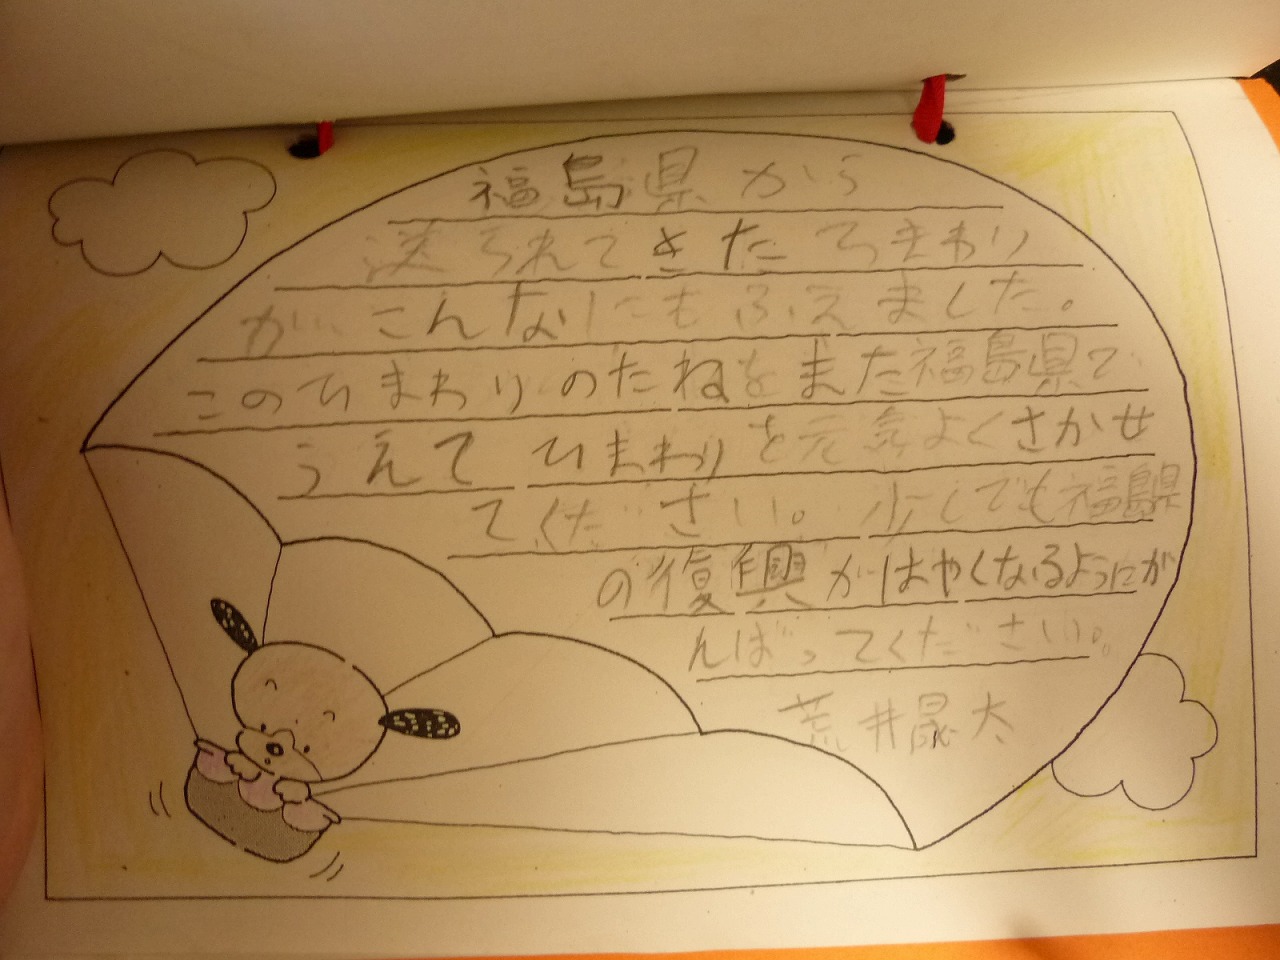 福島県から
送られてきたひまわり
がこんなにもふえました。
このひまわりのたねをまた福島県で
うえてひまわりを元気よくさかせ
てください。少しでも福島県
の復興がはやくなるようにが
んばってください。
荒井晟太